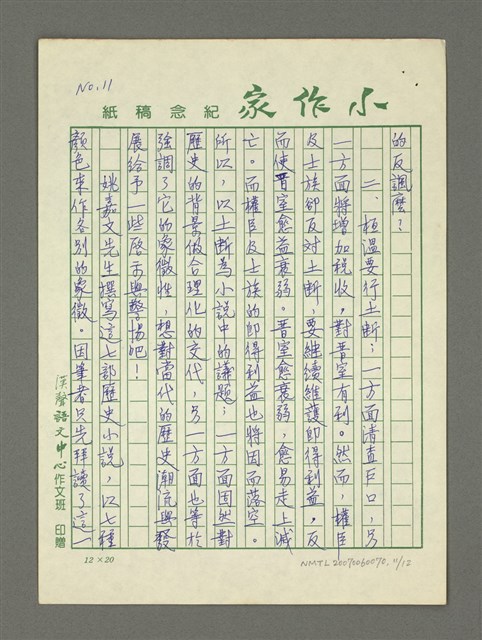 No.11
小作家 紀念稿紙
的反諷麼?
二、桓溫要行土斷:一方面清查戶口,另
一方面將增加稅收,對晉室有利。然而,權臣
及士族卻反對土斷,要継續維護即得利益,反
而使晉室愈益衰弱。晉室愈衰弱,愈易走上滅
亡。而權臣及士族的即得利益也將因而落空。
所以,以土斷為小說中的議題;一方面固然對
歷史的背景做合理化的交代,另一方面也等於
強調了它的象徵性,想對當代的歷史潮流與發
展給予一些啓示與警惕吧!
姚嘉文先生撰寫這七部歷史小說,以七種
顏色來作各別的象徵。因筆者只先拜讀了這一
漢聲語文中心作文班 印贈
12×20
NMTL20070060070.11/12